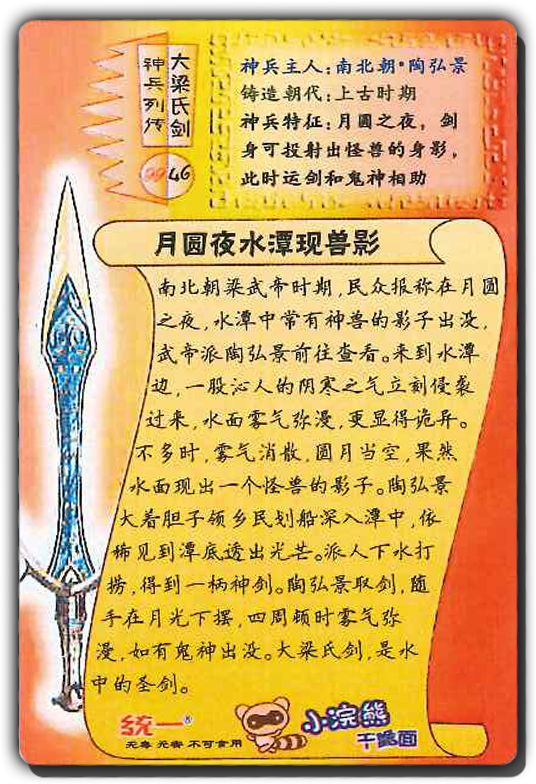 大梁氏剑
神兵列传
99 46
神兵主人:南北朝·陶弘景
铸造朝代:上古时期
神兵特征:月圆之夜，剑
身可投射出怪兽的身影，
此时运剑和鬼神相助
月圆夜水潭现兽影
南北朝梁武帝时期,民众报称在月圆
之夜,水潭中常有神兽的影子出没,
武帝派陶弘景前往查看。来到水潭
边,一股沁人的阴寒之气立刻侵袭
过来,水面雾气弥漫,更显得诡异。
不多时,雾气消散,圆月当空,果然
水面现出一个怪兽的影子。陶弘景
大着胆子领乡民划船深入潭中,依
稀见到潭底透出光芒。派人下水打
捞,得到一柄神剑。陶弘景取剑,随
手在月光下摆,四周顿时雾气弥
漫,如有鬼神出没。大梁氏剑,是水
中的圣剑。
统一®
无毒 无害 不可食用
小浣熊
干脆面